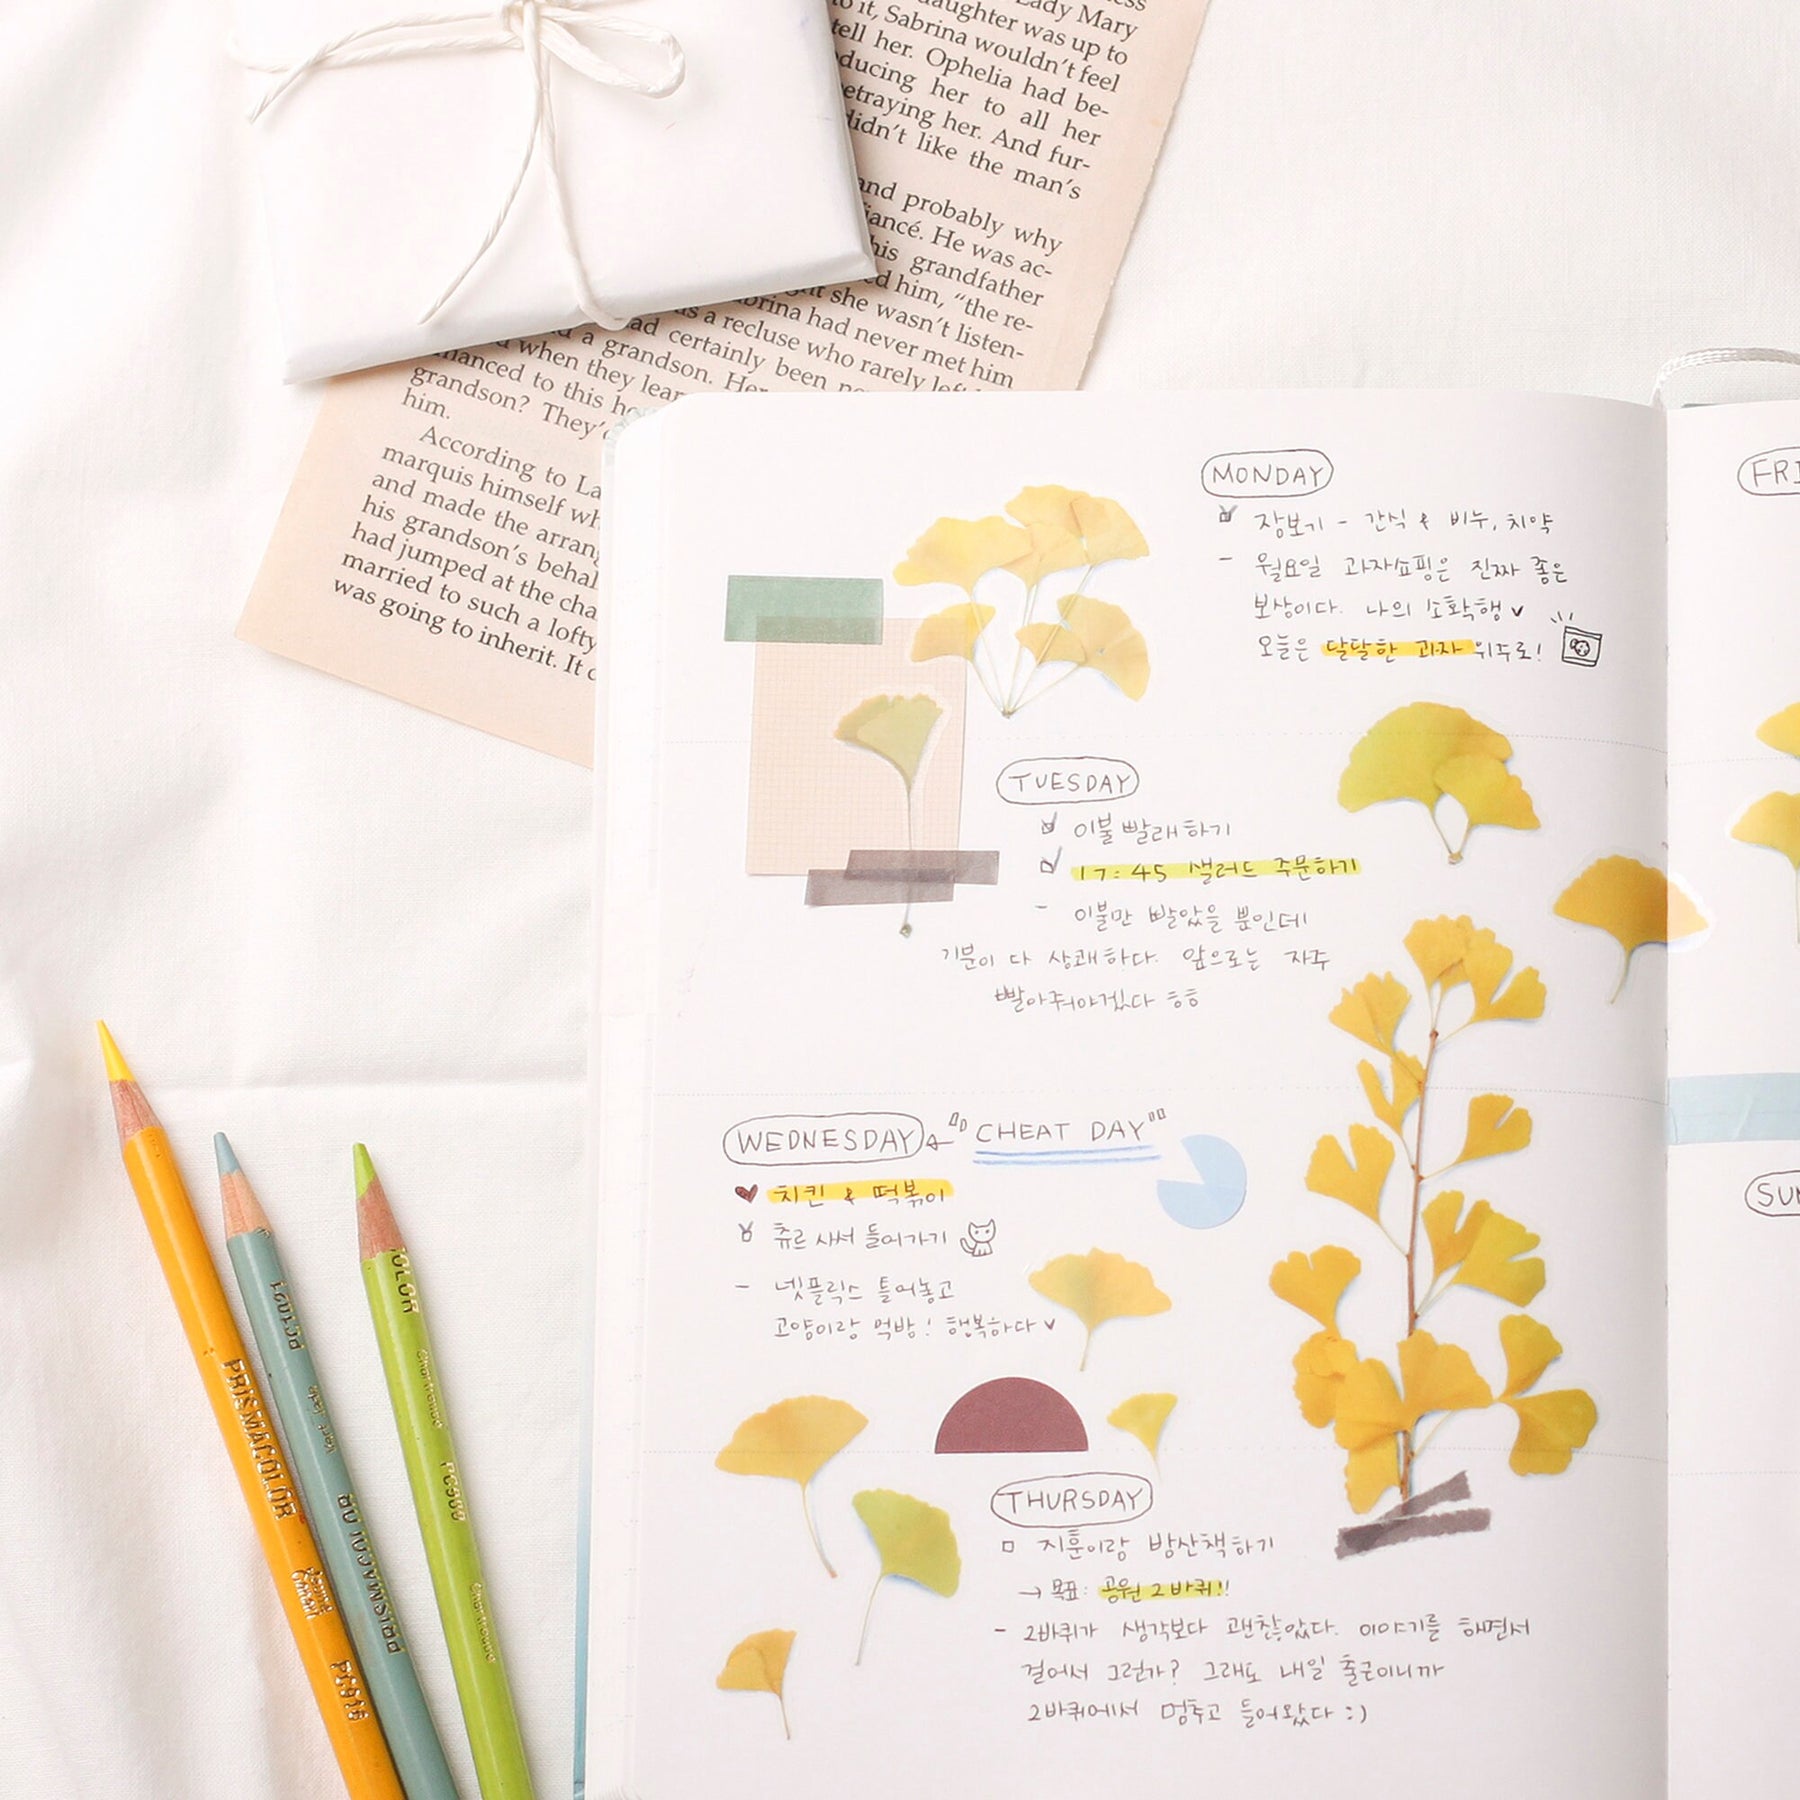 Lady Mary
daughter was up to
to it, Sabrina wouldn't feel
tell her. Ophelia had be-
ducing her to all her
etraying her. And fur-
didn't like the man's
and probably why
iancé. He was ac-
his grandfather
ed him, "the re-
she wasn't listen-
brina had never met him
as a recluse who rarely left
ad certainly been
a grandson. Her
when they lear
nanced to this
grandson? They'd
him.
According to La
marquis himself wh
and made the arrang
his grandson's behal
had jumped at the cha
married to such a lofty
was going to inherit. It
MONDAY
장보기 - 간식 & 비누, 치약
- 월요일 과자쇼핑은 진짜 좋은
보상이다. 나의 소확행
오늘은 달달한 과자 위주로!
TUESDAY
이불 빨래하기
17:45 샐러드 주문하기
- 이불만 빨았을 뿐인데
기분이 다 상쾌하다. 앞으로는 자주
빨아줘야겠다 ㅎㅎ
WEDNESDAY ← "CHEAT DAY"
♥ 치킨 & 떡볶이
츄르 사서 들어가기
- 넷플릭스 틀어놓고
고양이랑 먹방! 행복하다♥
THURSDAY
□ 지훈이랑 밤산책하기
→ 목표: 공원 2바퀴!!
- 2바퀴가 생각보다 괜찮았다. 이야기를 하면서
걸어서 그런가? 그래도 내일 출근이니까
2바퀴에서 멈추고 들어왔다 :)
FRI
SUN
PRISMACOLOR
PRISMACOLOR
PC1021
PC989